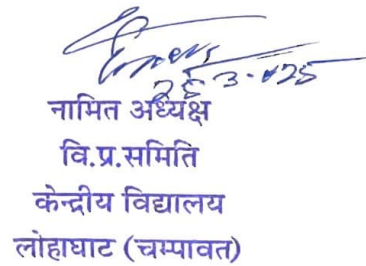 नामित अध्यक्ष
वि.प्र.समिति
केन्द्रीय विद्यालय
लोहाघाट (चम्पावत)